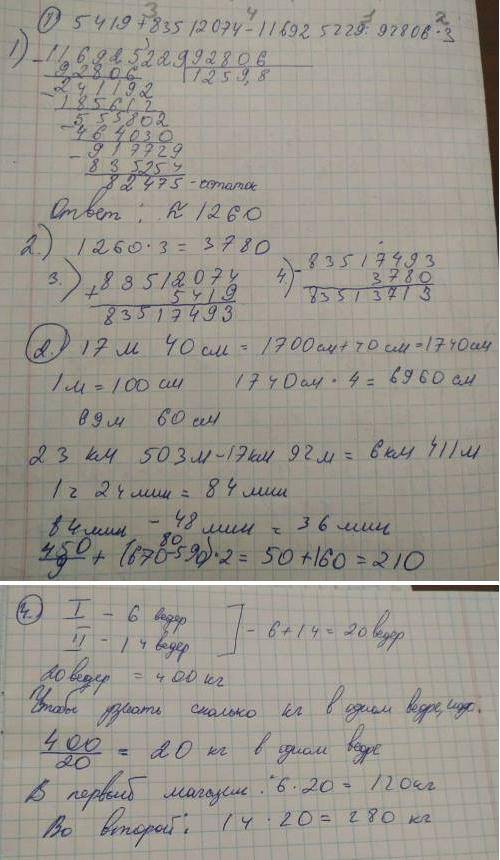 1) 5419+83512074-116925229:92806·3
1) 116925229 92806
92806 1259,8
241192
185612
555802
464030
917729
835254
82475 - остаток
Ответ: ≈ 1260
2.) 1260·3=3780
3.) 83512074
+ 5419
83517493
4.) 83517493
- 3780
83513713
2.) 17 м 40 см = 1700см+40см=1740см
1м=100 см 1740см·4=6960см
69м 60см
23 км 503м-17км 92м=6км 411м
1ч 24мин=84мин
84мин - 48мин = 36мин
80
450/9 + (670-590)·2=50+160=210
4. I - 6 ведер
II - 14 ведер ] - 6+14=20ведер
20ведер = 400кг
Чтобы узнать сколько кг в одном ведре, надо.
400/20 = 20 кг в одном ведре
В первый магазин: 6·20=120кг
Во второй: 14·20=280 кг